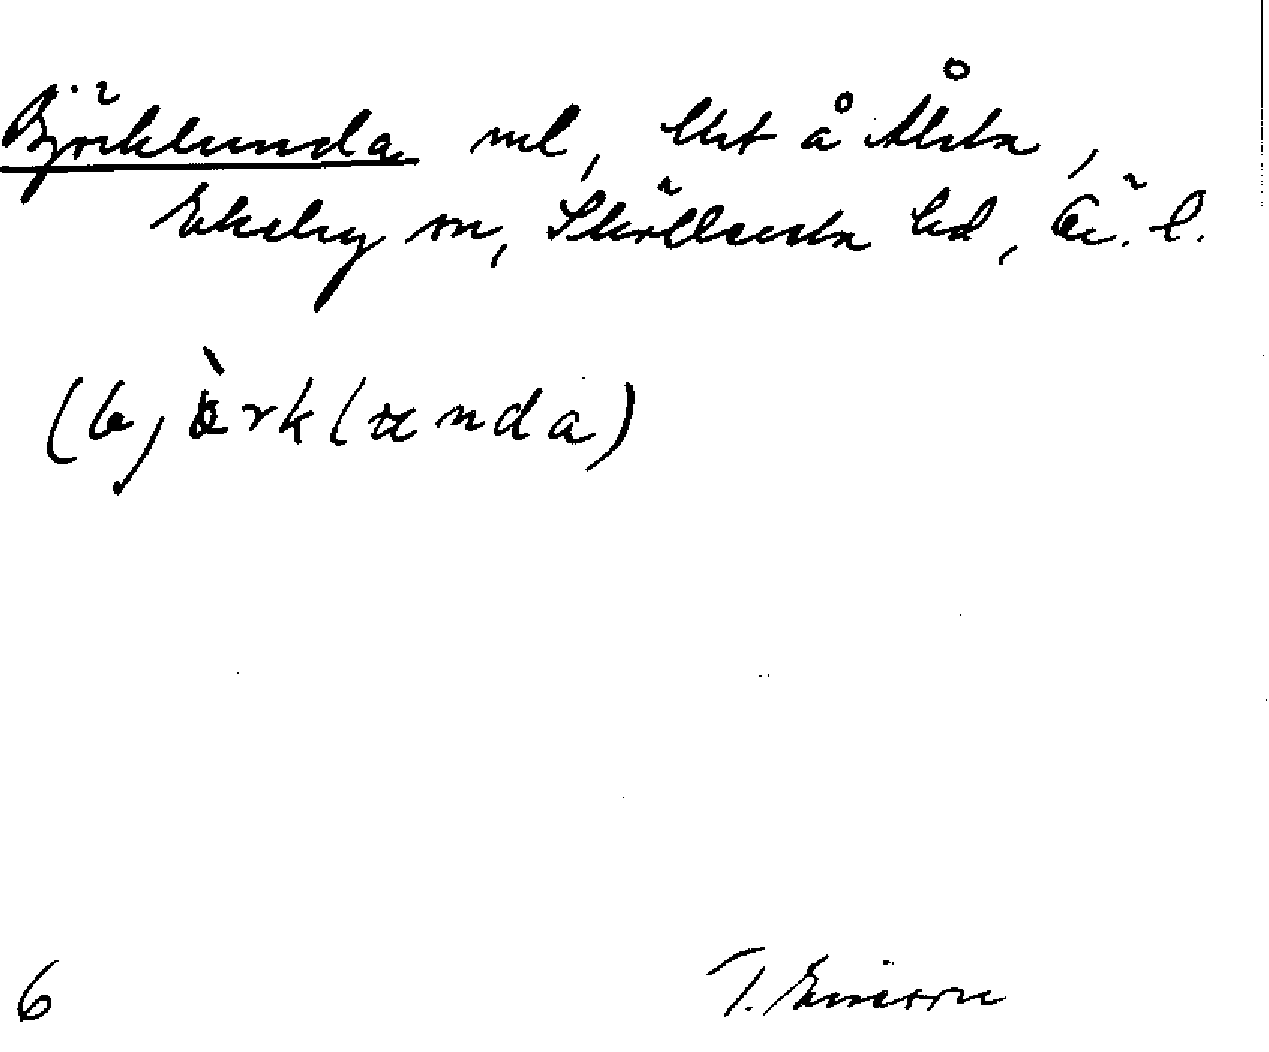 Björklunda ml, lht å Ålsta,
Ekeby sn, Sköllersta hd, Ö. l.
(bjòrklunda)
6
T. Ericsson